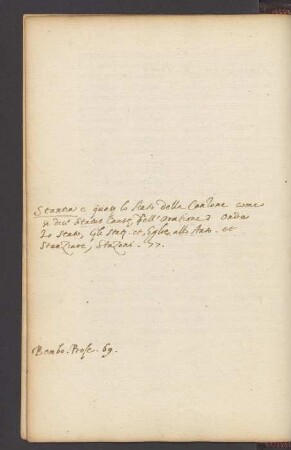 Stanza è quasi lo stato della Canzone come
si dice Status causæ, dell'oratione onde
Lo stato, Gli stati. et, Egloe, allo stato. et
Stanziare, Stazioni.
Bembo. Prose. 69.